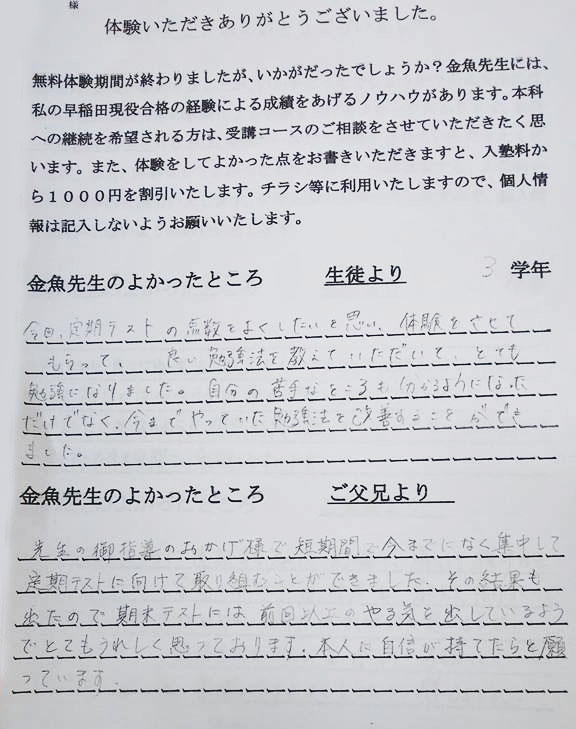 様
体験いただきありがとうございました。
無料体験期間が終わりましたが、いかがだったでしょうか？金魚先生には、
私の早稲田現役合格の経験による成績をあげるノウハウがあります。本科
への継続を希望される方は、受講コースのご相談をさせていただきたく思
います。また、体験をしてよかった点をお書きいただきますと、入塾料か
ら１０００円を割引いたします。チラシ等に利用いたしますので、個人情
報は記入しないようお願いいたします。
金魚先生のよかったところ 生徒より 3 学年
今回、定期テストの点数をよくしたいと思い、体験をさせて
もらって、 良い勉強法を教えていただいて、とても
勉強になりました。自分の苦手なところも分かるようになった
だけでなく、今までやっていた勉強法を改善することができ
ました。
金魚先生のよかったところ ご父兄より
先生の御指導のおかげ様で短期間で今までになく集中して
定期テストに向けて取り組むことができました。その結果も
出たので期末テストには前回以上のやる気を出しているよう
でとてもうれしく思っております。本人に自信が持てたらと願
っています。